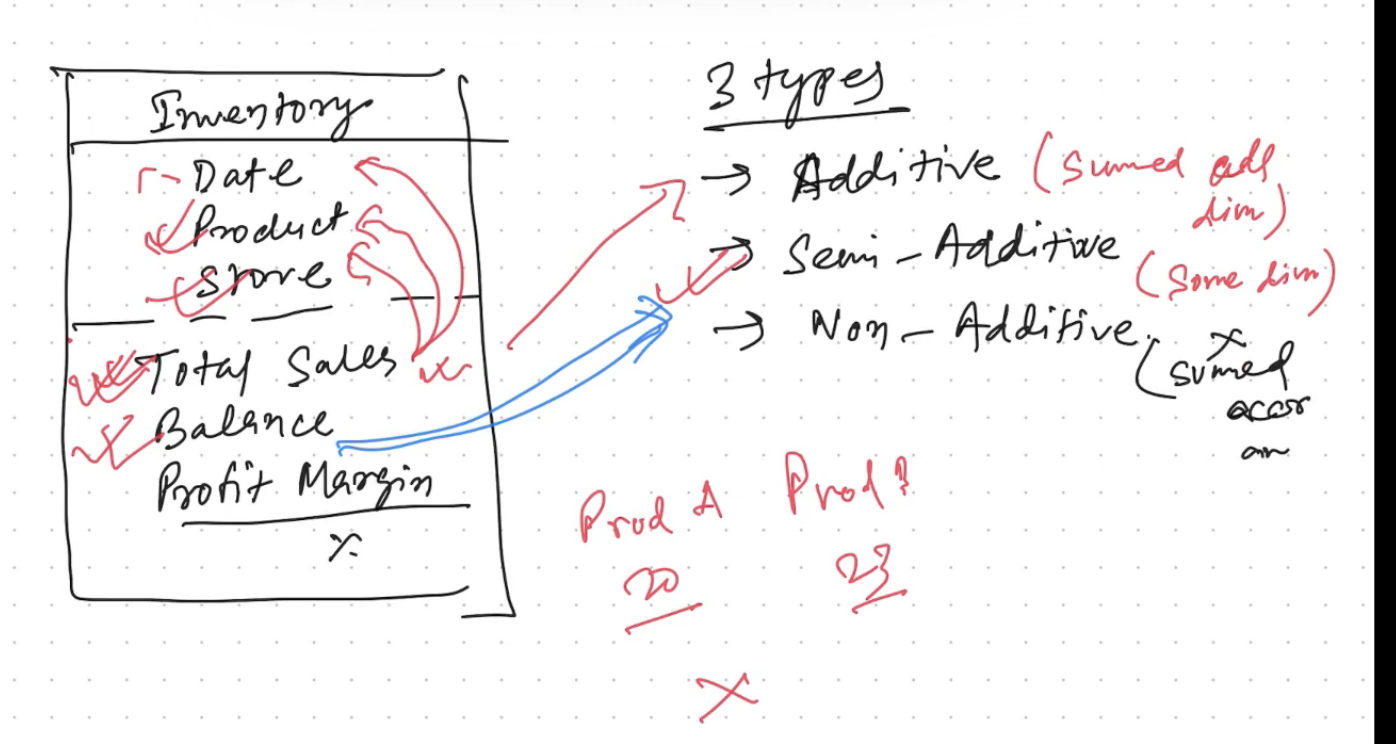 Inventory
Date
Product
Store
Total Sales
Balance
Profit Margin
%
3 types
→ Additive (Sumed all
dim)
→ Semi-Additive
(Some dim)
→ Non-Additive.
(sumed
Prod A Prod
20 23